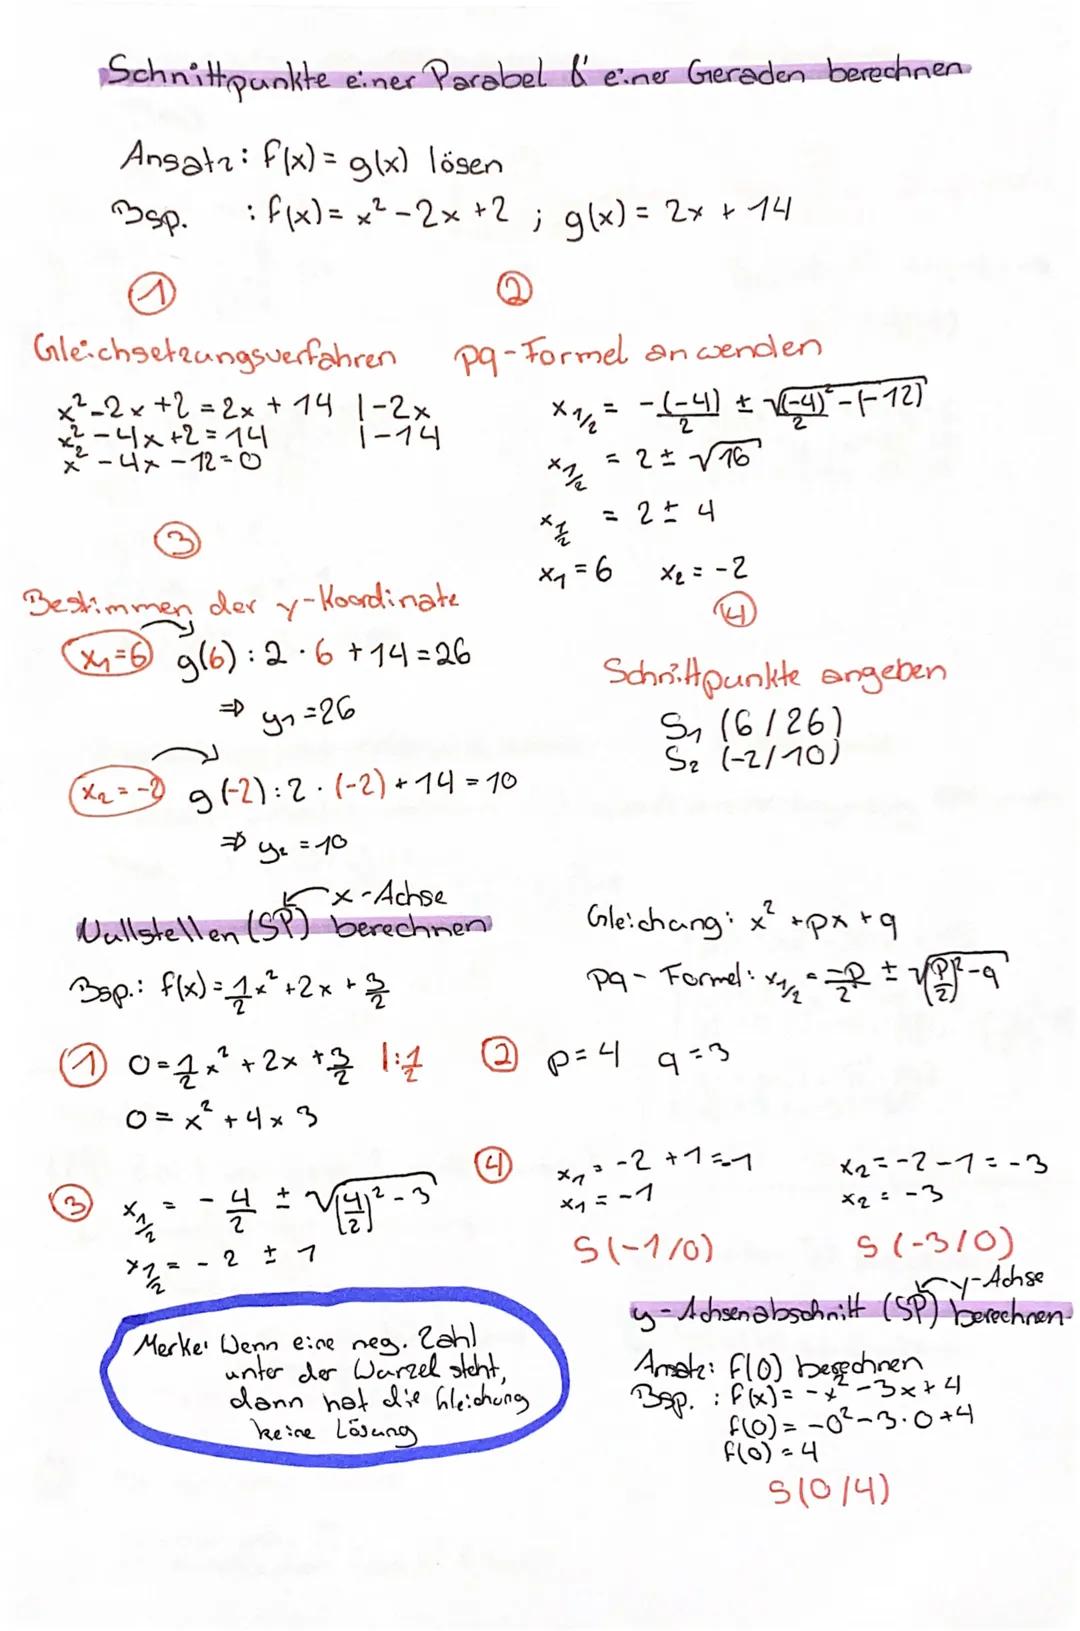 Schnittpunkte einer Parabel & einer Geraden berechnen
Ansatz: f(x) = g(x) lösen
Bsp. : f(x) = x² - 2x + 2 ; g(x) = 2x + 14
①
Gleichsetzungsverfahren
x² - 2x + 2 = 2x + 14 | -2x
x² - 4x + 2 = 14 | -14
x² - 4x - 12 = 0
②
pq-Formel anwenden
x1/2 = -(-4)/2 ± √((-4)/2)² - (-12)
x1/2 = 2 ± √16
x1/2 = 2 ± 4
x₁ = 6 x₂ = -2
③
Bestimmen der y-Koordinate
x₁=6 g(6) : 2 · 6 + 14 = 26
⇒ y₁ = 26
x₂ = -2 g(-2) : 2 · (-2) + 14 = 10
⇒ y₂ = 10
④
Schnittpunkte angeben
S₁ (6/26)
S₂ (-2/10)
x-Achse
Nullstellen (SP) berechnen
Bsp.: f(x) = 1/2 x² + 2x + 3/2
Gleichung: x² + px + q
pq-Formel: x1/2 = -p/2 ± √(p/2)² - q
① 0 = 1/2 x² + 2x + 3/2 | : 1/2
0 = x² + 4x 3
② p = 4 q = 3
③ x1/2 = - 4/2 ± √(4/2)² - 3
x1/2 = - 2 ± 1
④ x₁ = -2 + 1 = -1 x₂ = -2 - 1 = -3
x₁ = -1 x₂ = -3
S(-1/0) S(-3/0)
Merke: Wenn eine neg. Zahl
unter der Wurzel steht,
dann hat die Gleichung
keine Lösung
y-Achse
y-Achsenabschnitt (SP) berechnen
Ansatz: f(0) berechnen
Bsp. : f(x) = -x² - 3x + 4
f(0) = -0² - 3 · 0 + 4
f(0) = 4
S(0/4)